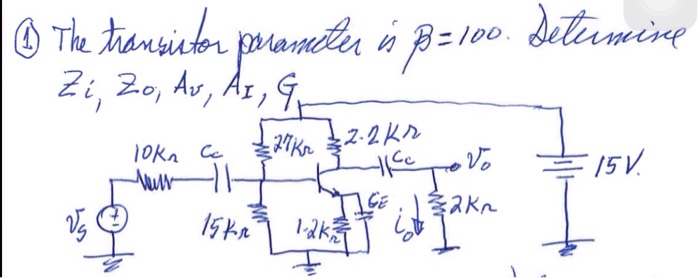 ① The transistor parameter is β=100. Determine
Zi, Zo, Av, AI, G
10KΩ Cc 27KΩ 2.2KΩ Cc Vo 15V.
Vs 15KΩ 1.2KΩ CE io 2KΩ